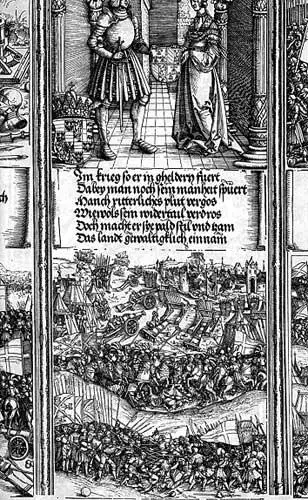 Im krieg so er in gheldern fuert
Dabey man noch sein manhait spuert
Manch ritterliches plut vergos
Wiewols sein widertail verdros
Doch macht er sye pald stil vnd zam
Das landt gewaltigklich einnam